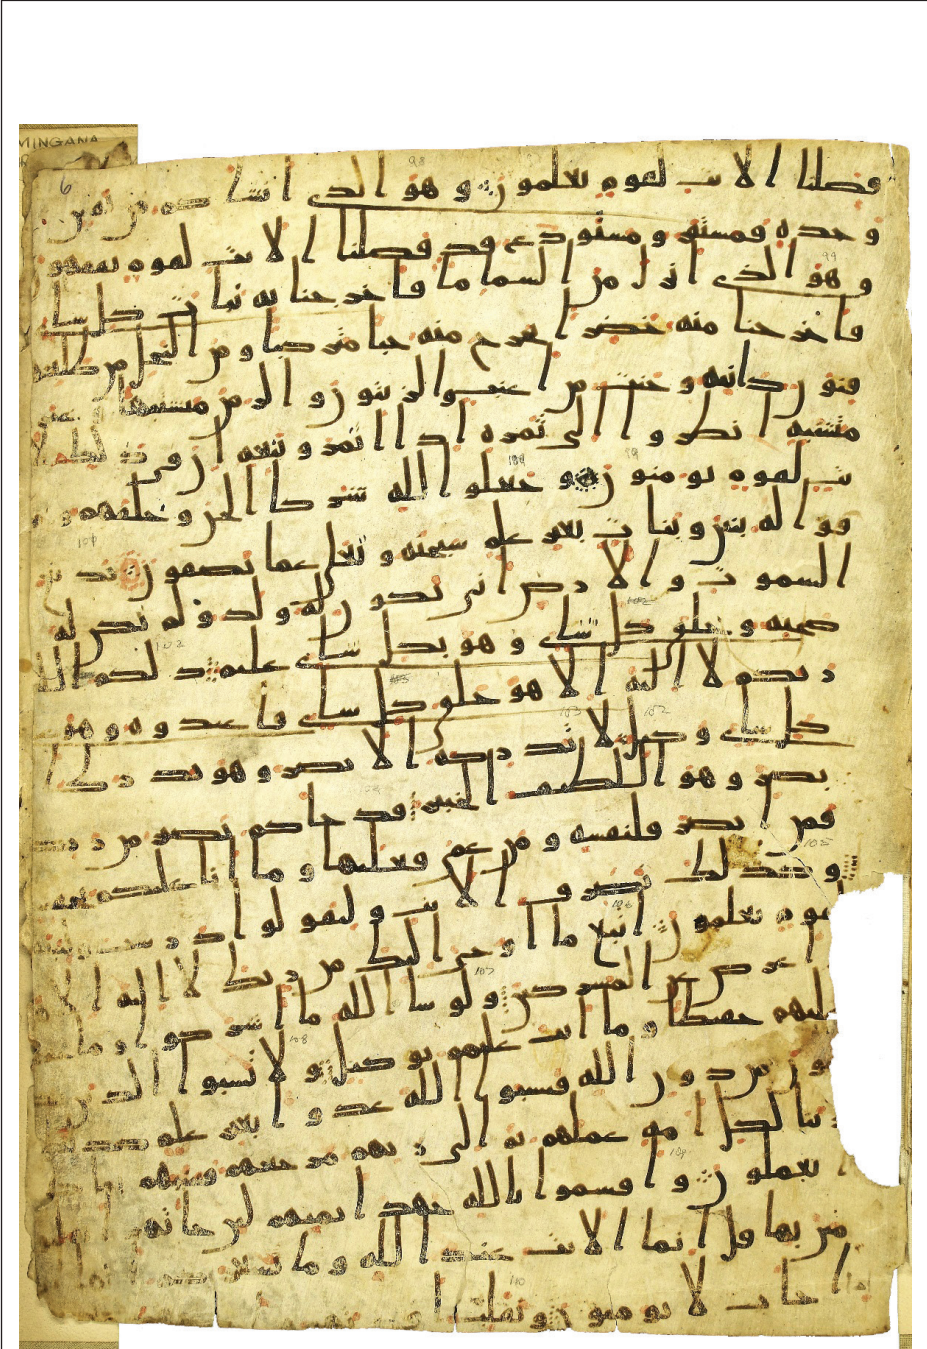 فصلنا الايت لقوم يعلمون وهو الذي انشاكم من نفس
وحده فمستقر ومستودع قد فصلنا الايت لقوم يفقهو
وهو الذي انزل من السما ما فاخرجنا به نبات كل شي
فاخرجنا منه خضرا نخرج منه حبا متركبا ومن النخل من طلعها
قنون دانيه وجنت من اعنب والزيتون والرمن مشتبها وغير
متشبه انظروا الى ثمره اذا اثمر وينعه ان في ذلكم لا
يت لقوم يومنون وجعلوا لله شركا الجن وخلقهم و
قوا له بنين وبنات بغير علم سبحنه وتعلى عما يصفون بديع
السموت والارض انى يكون له ولد ولم تكن له
صحبه وخلق كل شي وهو بكل شي عليم ذلكم الله
ربكم لا اله الا هو خلق كل شي فاعبدوه وهو
كل شي وكيل لا تدركه الابصر وهو يدرك ا
بصر وهو اللطيف الخبير قد جاكم بصير من ربكم
فمن ابصر فلنفسه ومن عمي فعليها وما انا عليكم
وكذلك نصرف الايت وليقولوا درست
قوم يعلمون اتبع ما اوحي اليك من ربك لا اله الا
اعرض عن المشركين ولو شا الله ما اشركوا وما
عليهم حفيظا وما انت عليهم بوكيل ولا تسبوا الذين
ون من دون الله فيسبوا الله عدوا بغير علم كذلك
زينا لكل امه عملهم ثم الى ربهم مرجعهم فينبيهم
يعملون واقسموا بالله جهد ايمنهم لين جاتهم
من بها قل انما الايت عند الله وما يشعركم
اذا جات لا يومنون ونقلب